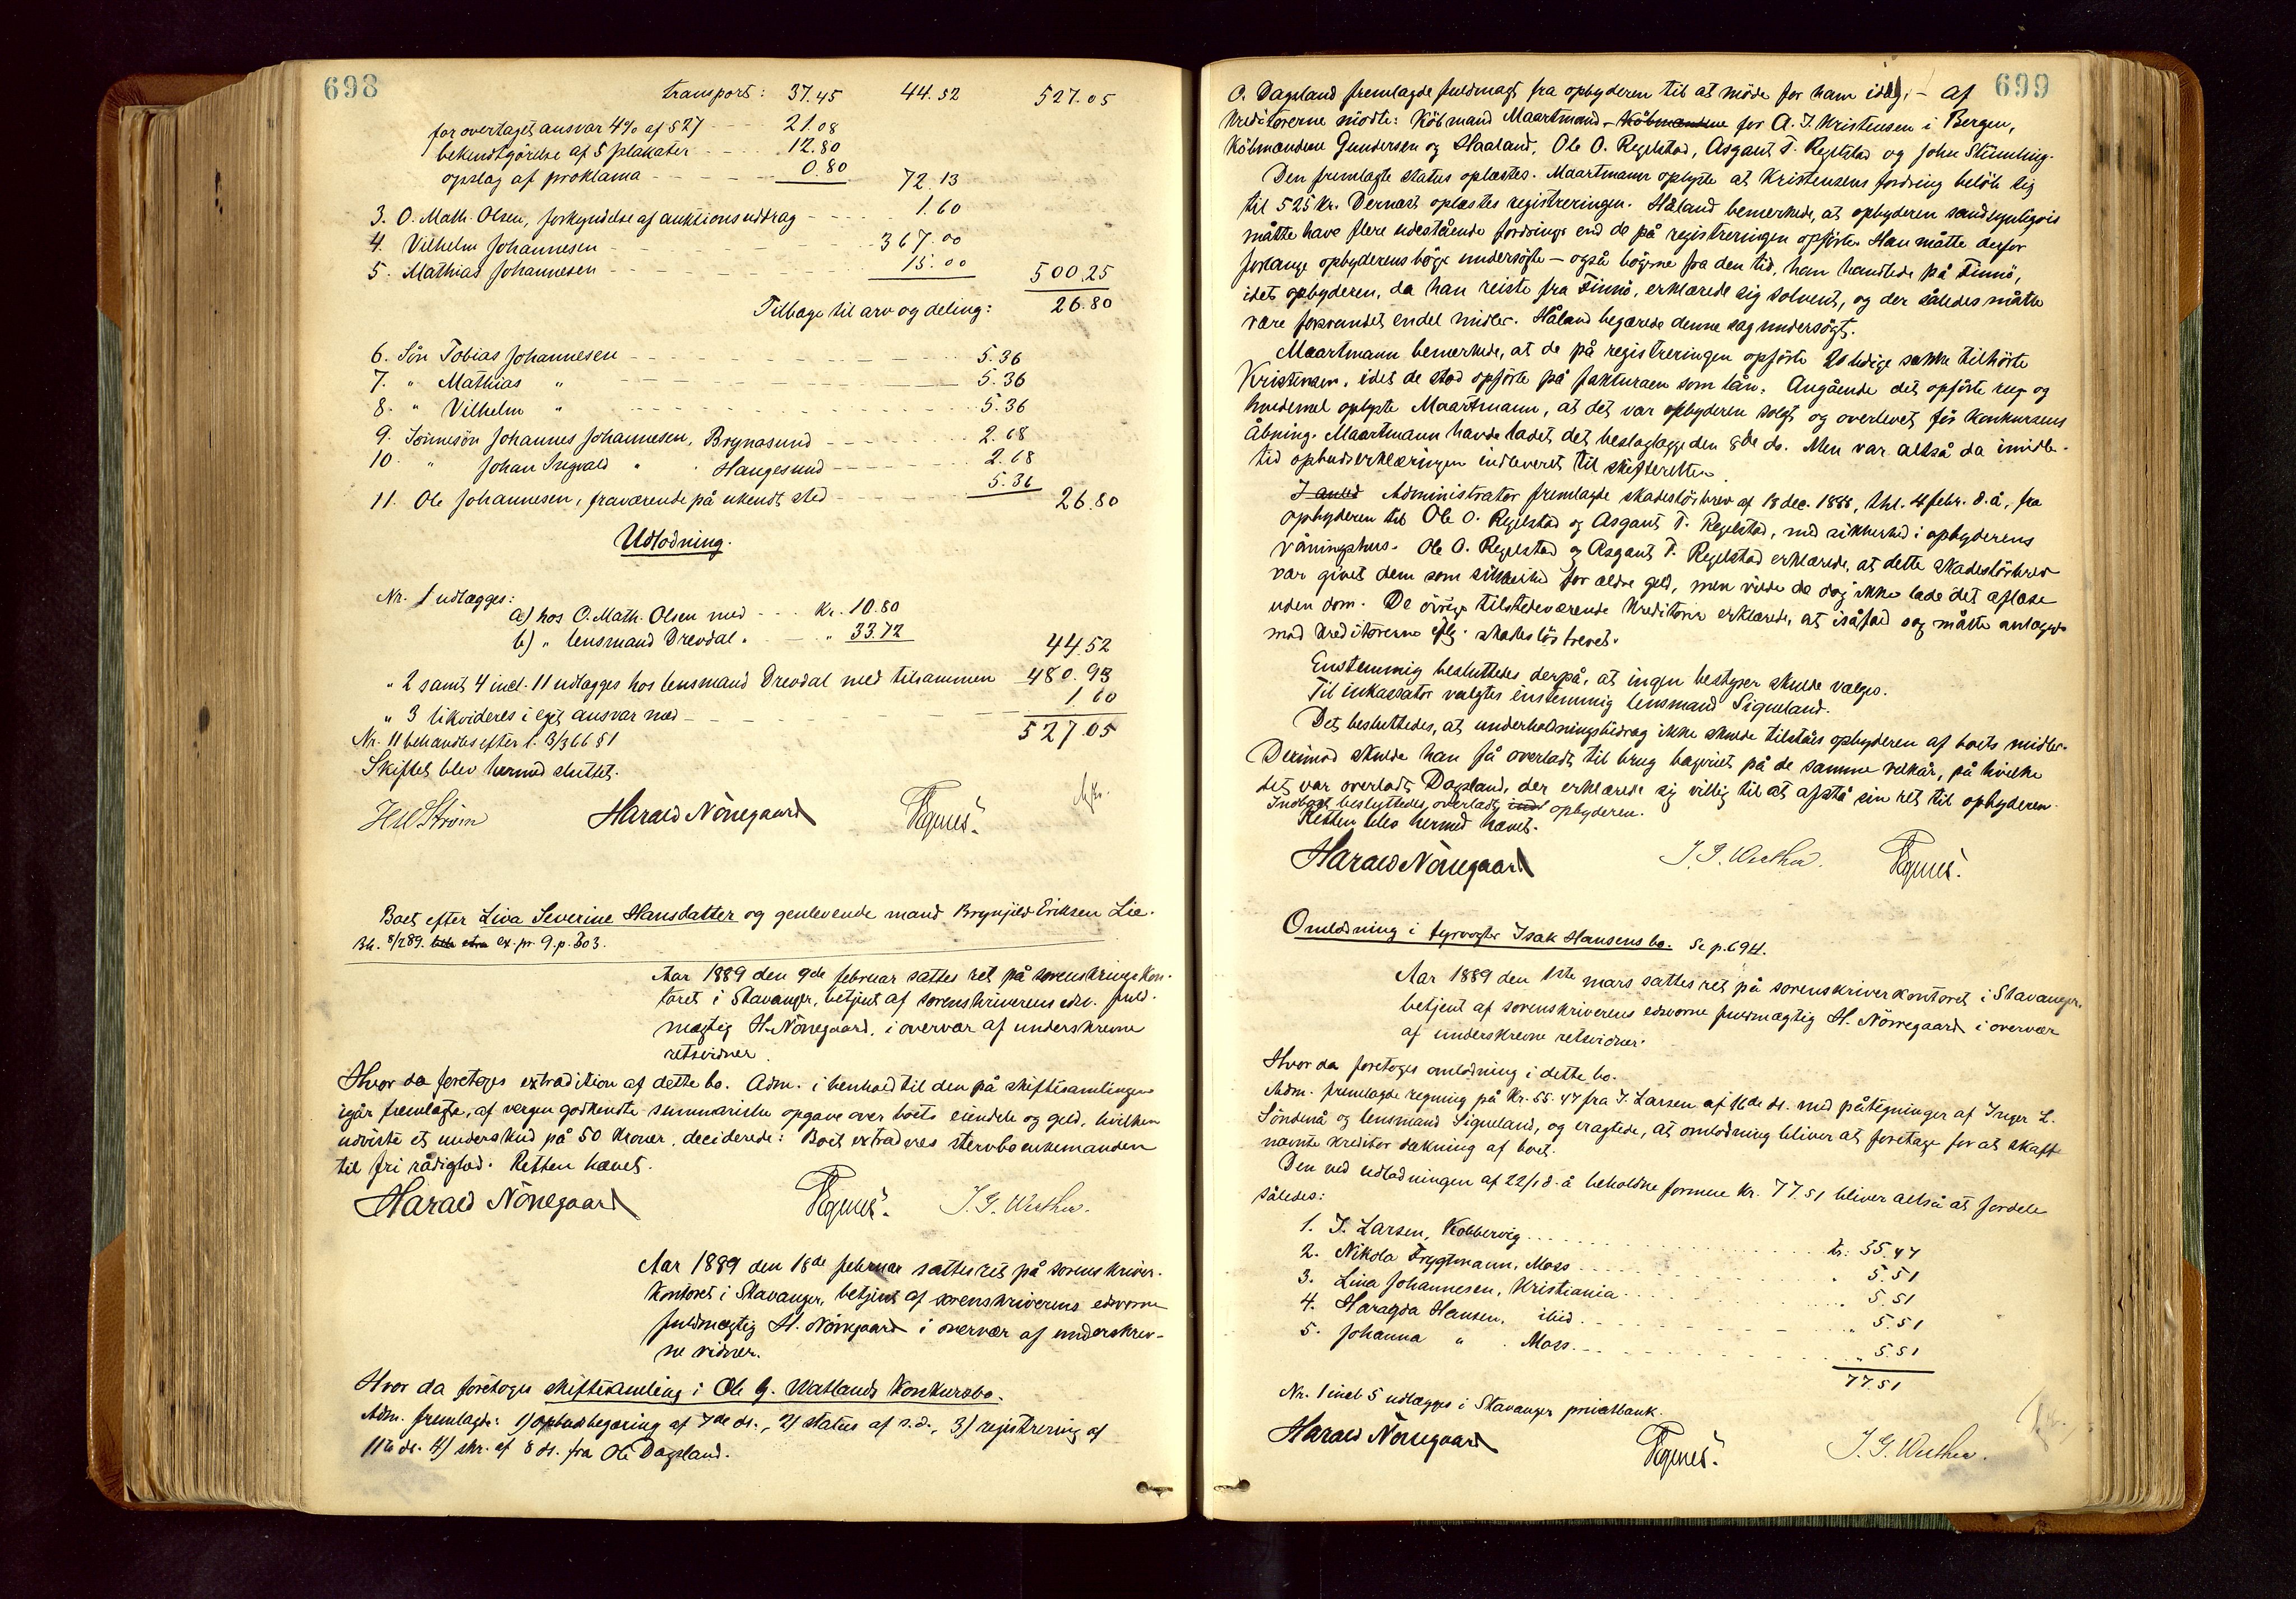 698
transport: 37.45 44.52 527.05
for overtaget ansvar 4% af 527 - - - 21.08
bekendtgörelse af 5 plakater - - - - 12.80
opslag af proklama - - - - - - 0.80 72.13
3. O. Math. Olsen, forkyndelse af auktionsuddrag - - - - - 1.60
4. Vilhelm Johannesen - - - - - - 367.00
5. Mathias Johannesen - - - - - - 15.00 500.25
Tilbage til arv og deling: 26.80
6. Sön Tobias Johannesen - - - - - - 5.36
7. " Mathias " - - - - - - 5.36
8. " Vilhelm " - - - - - - 5.36
9. Sönnesön Johannes Johannesen, Brynasund - - - - - 2.68
10. " Johan Ingvald " Haugesund - - - - - 2.68
11. Ole Johannesen, fraværende på ukendt sted - - - - 5.36 26.80
Udlodning.
Nr. 1 udlægges:
a) hos O. Math. Olsen med - - - Kr. 10.80
b) " lensmand Drevdal " - - - " 33.72 44.52
" 2 samt 4 incl. 11 udlægges hos lensmand Drevdal med tilsammen 480.93
" 3 likvideres i eget ansvar med - - - - - - 1.60
Nr. 11 behandles efter l. 3/3 66 § 1 527.05
Skiftet blev hermed sluttet.
HWStröm Harald Nörregaard
Boet efter Liva Severine Hansdatter og genlevende mand Brynjild Eriksen Lie.
Bh. 8/2 89. ex. pr. 9. p. 303.
Aar 1889 den 9de februar sattes ret på sorenskriverkon-
toret i Stavanger, betjent af sorenskriverens edsv. fuld-
mægtig H. Nörregaard, i overvær af underskrevne
retsvidner.
Hvor da foretoges extradition af dette bo. Adm. i henhold til den på skiftesamlingen
igår fremlagte, af vergen godkendte summariske opgave over boets eiendele og gæld, hvilken
udviste et underskud på 50 kroner, deciderede: Boet extraderes stervboenkemanden
til fri rådighed. Retten hævet.
Harald Nörregaard J. G. Werther.
Aar 1889 den 18de februar sattes ret på sorenskriver-
kontoret i Stavanger, betjent af sorenskriverens edsvorne
fuldmægtig H. Nörregaard i overvær af underskrev-
ne vidner.
Hvor da foretoges skiftesamling i Ole G. Watlands konkursbo.
Adm. fremlagde: 1) opbudsbegæring af 7de ds., 2) status af s.d., 3) registrering af
11te ds. 4) skr. af 8 ds. fra Ole Dagsland.
699
O. Dagsland fremlagde fuldmagt fra opbyderen til at möde for ham idag. - af
kreditorerne mödte: Köbmand Maartmann - Köbmændene for A. J. Kristensen i Bergen,
Köbmændene Gundersen og Haaland, Ole O. Regelstad, Asgaut T. Regelstad og John Stumling.
Den fremlagte status oplæstes. Maartmann oplyste at Kristensens fordring belöb sig
til 525 kr. Dernæst oplæstes registreringen. Håland bemerkede, at opbyderen sandsynligvis
måtte have flere udestående fordringer end de på registreringen opförte. Han måtte derfor
forlange opbyderens böger undersögte - også bögerne fra den tid, han handlede på Finnö,
idet opbyderen, da han reiste fra Finnö, erklærede sig solvent, og der således måtte
være forsvundet endel midler. Håland begærede denne sag undersögt.
Maartmann bemerkede, at de på registreringen opförte 20 ledige sække tilhörte
Kristensen, idet de stod opförte på fakturaen som lån. Angående det opförte rug og
hvedemel oplyste Maartmann, at det var opbyderen solgt og overlevet för konkursens
åbning. Maartmann havde ladet det beslaglægge den 8de ds. Men var altså da imidler-
tid opbudserklæringen indleveret til skifteretten.
I anled Administrator fremlagde skadeslösbrev af 18 dec. 1888, thl. 4 febr. d.å., fra
opbyderen til Ole O. Regelstad og Asgaut T. Regelstad, med sikkerhed i opbyderens
våningshus. Ole O. Regelstad og Asgaut T. Regelstad erklærede, at dette skadeslösbrev
var givet dem som sikkerhed for ældre gæld, men vilde de dog ikke lade det aflæse
uden dom. De övrige tilstedeværende kreditorer erklærede, at isåfald sag måtte anlægges
mod kreditorerne iflg. skadeslösbrevet.
Enstemmig besluttedes derpå, at ingen bestyrer skulde vælges.
Til inkassator valgtes enstemmig lensmand Siqueland.
Det besluttedes, at underholdningsbidrag ikke skulde tilståes opbyderen af boets midler.
Derimod skulde han få overladt til brug bageriet på de samme vilkår, på hvilke
det var overladt Dagsland, der erklærede sig villig til at afstå sin ret til opbyderen.
Indboet besluttedes overladt opbyderen.
Retten blev hermed hævet.
Harald Nörregaard J. G. Werther.
Omlodning i fyrvogter Isak Hansens bo. Se p. 694.
Aar 1889 den 1ste mars sattes ret på sorenskriverkontoret i Stavanger,
betjent af sorenskriverens edsvorne fuldmægtig H. Nörregaard i overvær
af underskrevne retsvidner.
Hvor da foretoges omlodning i dette bo.
Adm. fremlagde regning på Kr. 55.47 fra J. Larsen af 16de ds. med påtegninger af Inger L.
Söndenå og lensmand Siqueland, og eragtede, at omlodning bliver at foretage for at skaffe
nævnte kreditor dækning af boet.
Den ved udlodningen af 22/1 d.å. beholdne formue Kr. 77.51 bliver altså at fordele
således:
1. J. Larsen, Kobbervig . . . . . . kr: 55.47
2. Nikola Frygtmann, Moss . . . . . . 5.51
3. Lina Johannesen, Kristiania . . . . . . 5.51
4. Haragda Hansen, ibid. . . . . . . " 5.51
5. Johanna " Moss. . . . . . . " 5.51
77.51
Nr. 1 incl 5 udlægges i Stavanger privatbank.
Harald Nörregaard J. G. Werther.